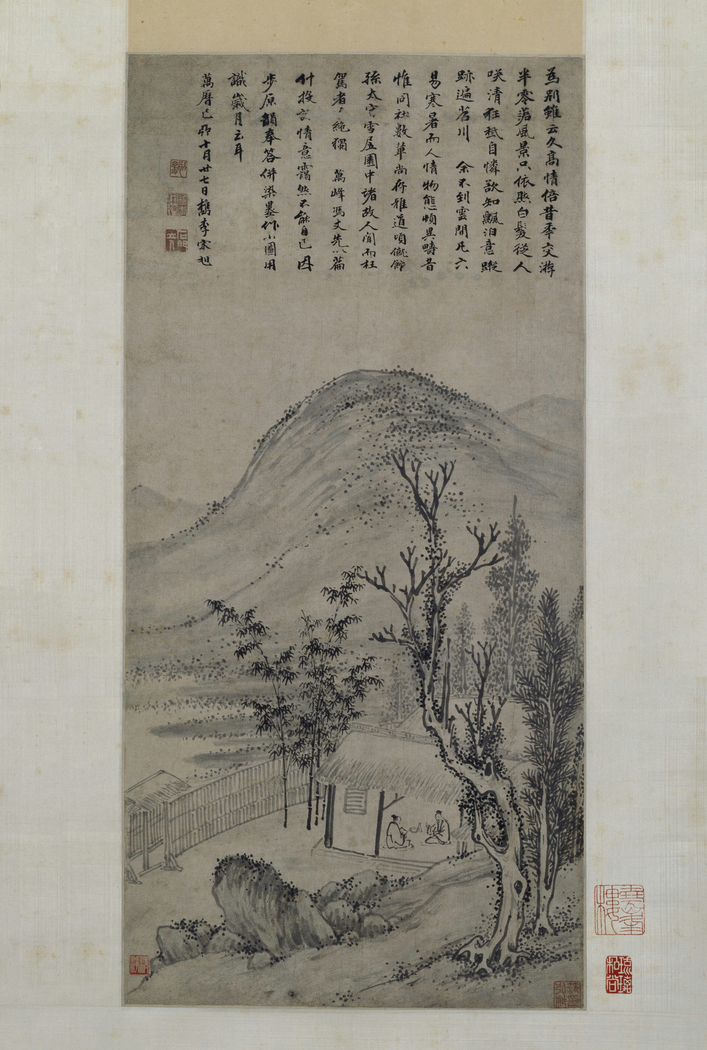 為別雖云久高情倍昔年交游
半零落風景只依然白髮從人
咲清狂秪自憐欲知飄泊意蹤
跡遍苕川 余不到雲間凡六
易寒暑而人情物態頓異疇昔
惟同社數輩尚存雅道
孫太守雪居園中諸故人聞而枉
駕者 純獨 萬峰馮丈先以篇
什投 情意靄然不能自已因
步原韻奉答併染墨作小圖用
識歲月云耳
萬曆己卯十月廿七日檇李宋旭